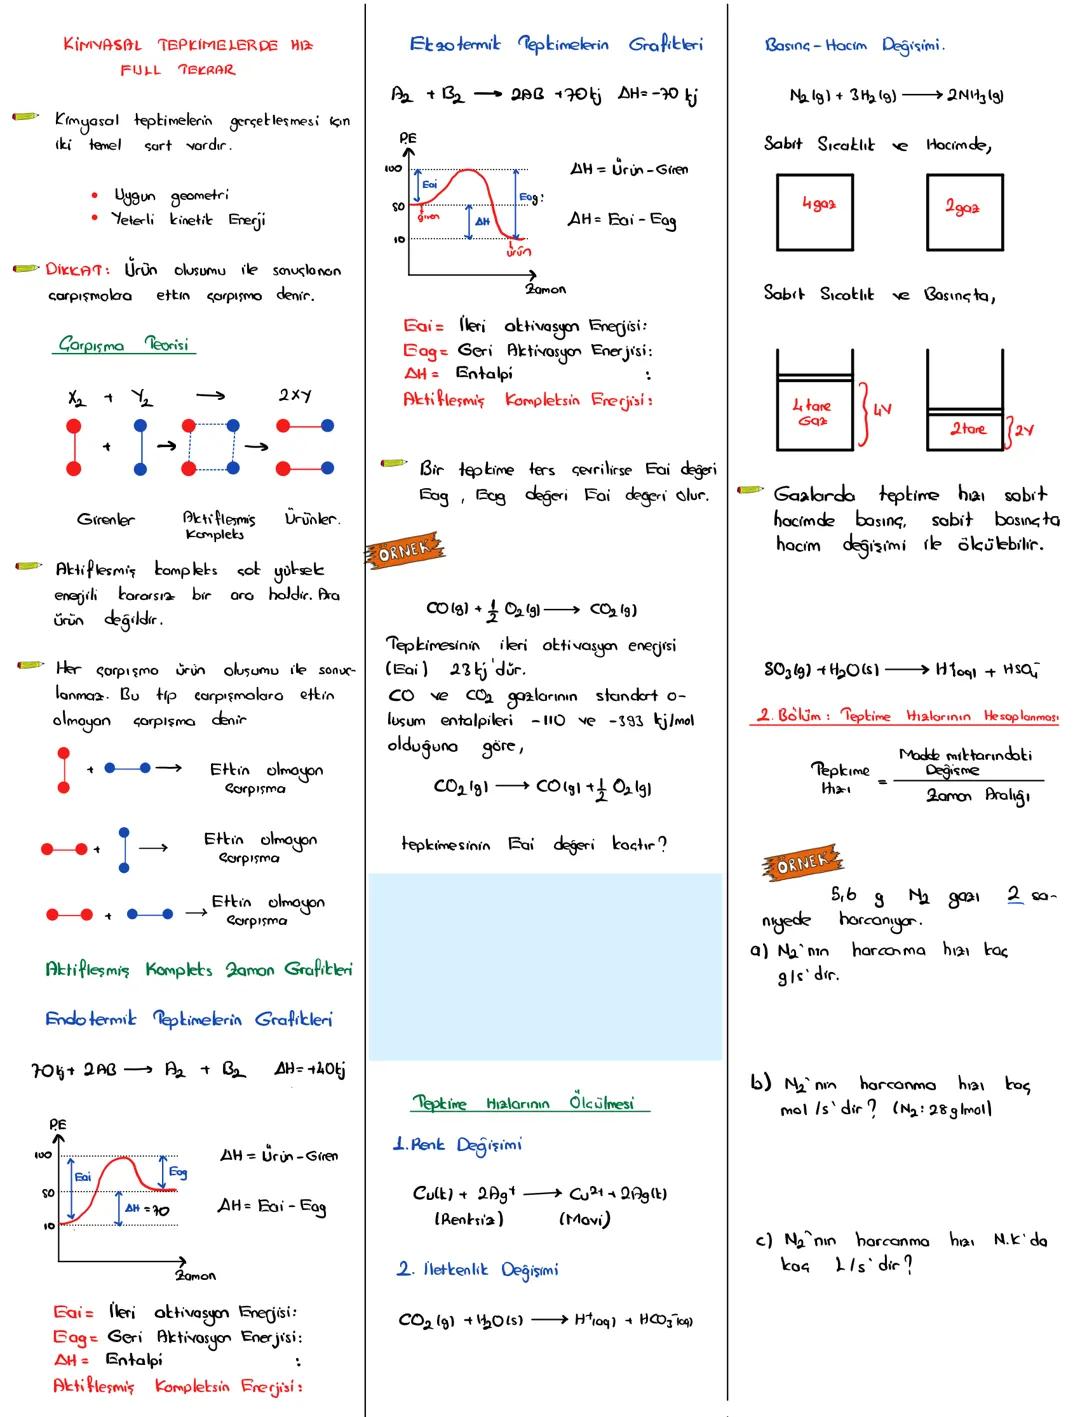 KİMYASAL TEPKİMELERDE HIZ
FULL TEKRAR
Kimyasal tepkimelerin gerçekleşmesi için
iki temel şart vardır.
• Uygun geometri
• Yeterli kinetik Enerji
DİKKAT: Ürün oluşumu ile sonuçlanan
çarpışmalara etkin çarpışma denir.
Çarpışma Teorisi
X₂ + Y₂ → 2XY
+ → →
Girenler Aktifleşmiş Ürünler.
Kompleks
Aktifleşmiş kompleks çok yüksek
enerjili kararsız bir ara haldir. Ara
ürün değildir.
Her çarpışma ürün oluşumu ile sonuç-
lanmaz. Bu tip çarpışmalara etkin
olmayan çarpışma denir
+ → Etkin olmayan
Çarpışma
+ → Etkin olmayan
Çarpışma
+ → Etkin olmayan
Çarpışma
Aktifleşmiş Kompleks Zaman Grafikleri
Endotermik Tepkimelerin Grafikleri
70kj + 2AB → A₂ + B₂ ΔH=+40kj
P.E
100
50
10
Eai
Eag
ΔH = 70
Zaman
ΔH = Ürün-Giren
ΔH = Eai - Eag
Eai = İleri aktivasyon Enerjisi:
Eag = Geri Aktivasyon Enerjisi:
ΔH = Entalpi :
Aktifleşmiş Kompleksin Enerjisi:
Ekzotermik Tepkimelerin Grafikleri
A₂ + B₂ → 2AB +70kj ΔH=-70 kj
P.E
100
50
10
Eai
giren
ΔH
Eag:
ürün
Zaman
ΔH = Ürün-Giren
ΔH = Eai - Eag
Eai = İleri aktivasyon Enerjisi:
Eag = Geri Aktivasyon Enerjisi:
ΔH = Entalpi :
Aktifleşmiş Kompleksin Enerjisi:
Bir tepkime ters çevrilirse Eai değeri
Eag, Eag değeri Eai değeri olur.
ÖRNEK
CO(g) + 1/2 O₂(g) → CO₂(g)
Tepkimesinin ileri aktivasyon enerjisi
(Eai) 23kj'dür.
CO ve CO₂ gazlarının standart o-
luşum entalpileri -110 ve -393 kj/mol
olduğuna göre,
CO₂(g) → CO(g) + 1/2 O₂(g)
tepkimesinin Eai değeri kaçtır?
Tepkime Hızlarının Ölçülmesi
1. Renk Değişimi
Cu(k) + 2Ag⁺ → Cu²⁺ + 2Ag(k)
(Renksiz) (Mavi)
2. İletkenlik Değişimi
CO₂(g) + H₂O(s) → H⁺(aq) + HCO₃⁻(aq)
Basınç-Hacim Değişimi.
N₂(g) + 3H₂(g) → 2NH₃(g)
Sabit Sıcaklık ve Hacimde,
4gaz 2gaz
Sabit Sıcaklık ve Basınçta,
4 tane
Gaz
4V
2tane
2V
Gazlarda tepkime hızı sabit
hacimde basınç, sabit basınçta
hacim değişimi ile ölçülebilir.
SO₃(g) + H₂O(s) → H⁺(aq) + HSO₄⁻
2. Bölüm: Tepkime Hızlarının Hesaplanması
Tepkime Hızı = Madde miktarındaki Değişme
Zaman Aralığı
ÖRNEK
5,6 g N₂ gazı 2 sa-
niyede harcanıyor.
a) N₂'nin harcanma hızı kaç
g/s'dir.
b) N₂'nin harcanma hızı kaç
mol/s'dir? (N₂:28g/mol)
c) N₂'nin harcanma hızı N.K'da
kaç L/s'dir?